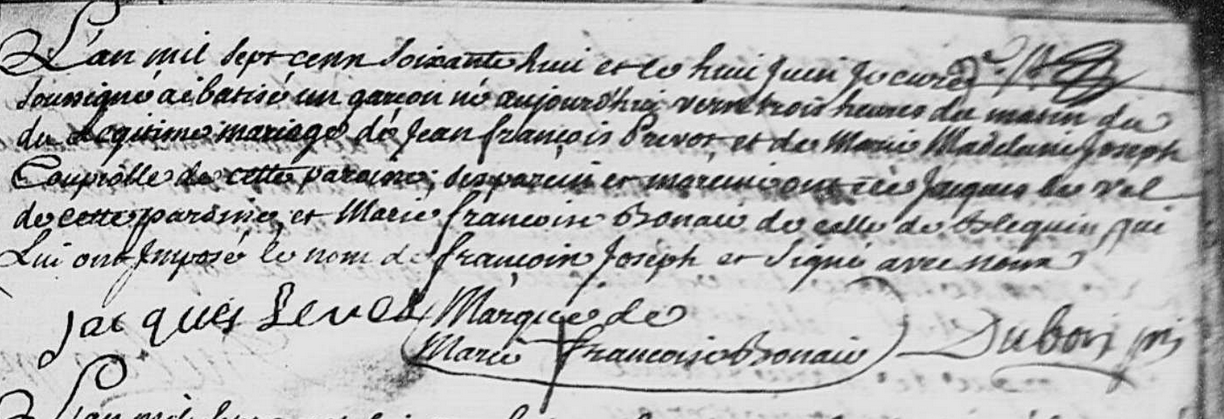 L'an mil sept cenn soixante huii et le huii juin je curé
soussigné ai batisé un garçon né aujourd'hui vers trois heures du matin du
du Legitime mariage de Jean françois Prevos et de Marie Madelaine Joseph
Couprolle de cette paroisse, ses parein et mareine ont été Jacques le vel
de cette paroisse, et Marie francoise Bonaie de celle de Blequin qui
Lui ont Imposé le nom de françoin Joseph et signé avec nous
Jacques Level Marque de Dubois
Marie francoise Bonaie
L'an mil